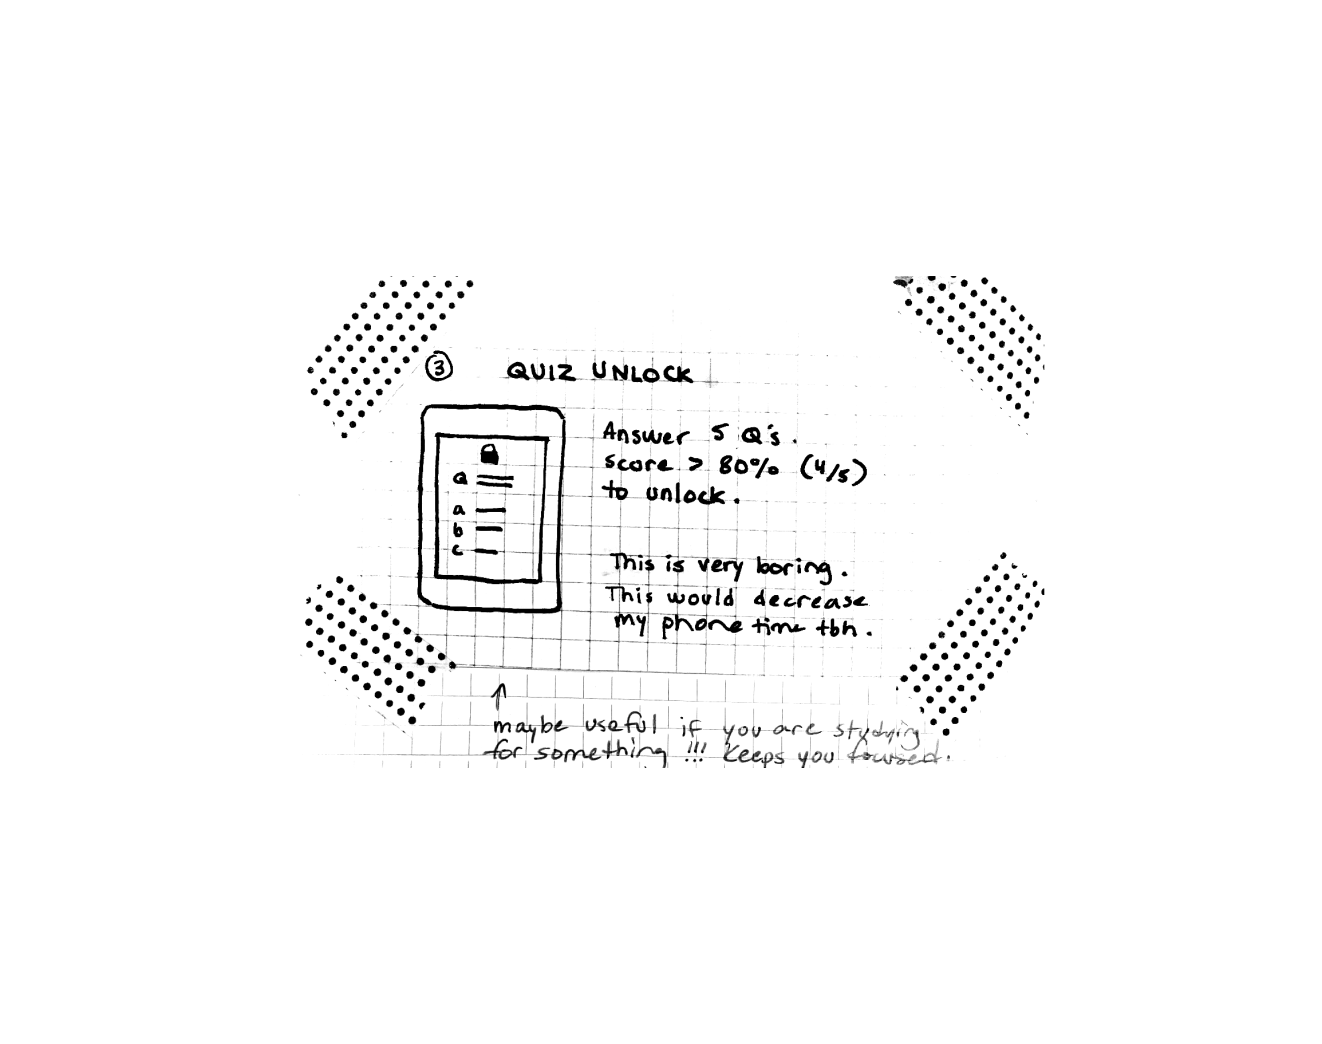 ③ QUIZ UNLOCK
Answer 5 Q's.
score > 80% (4/5)
to unlock.
Q
a
b
c
This is very boring.
This would decrease
my phone time tbh.
↑
maybe useful if you are studying
for something !!! Keeps you focused.